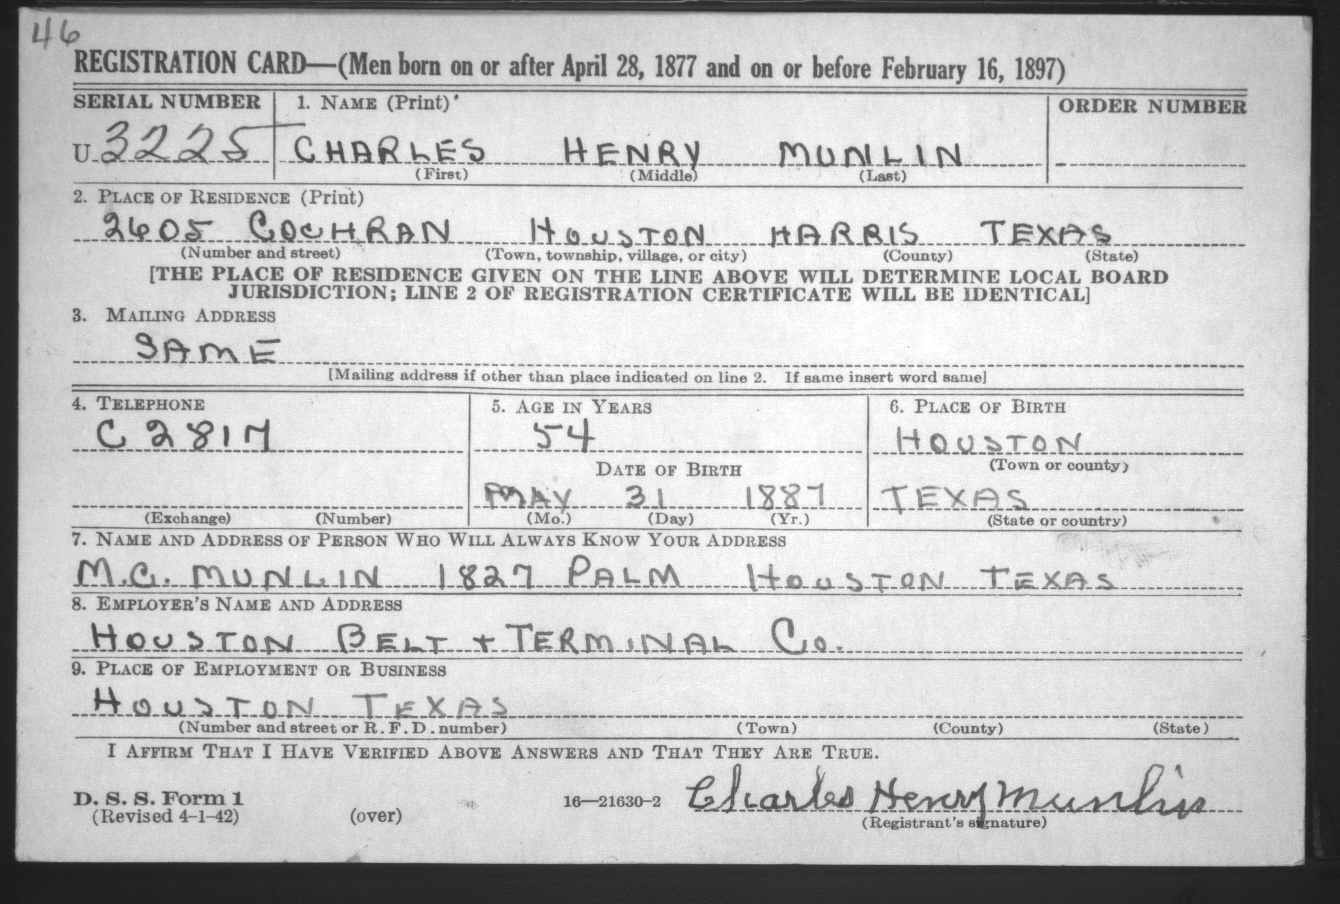 46
REGISTRATION CARD—(Men born on or after April 28, 1877 and on or before February 16, 1897)
SERIAL NUMBER 1. NAME (Print) ORDER NUMBER
U 3225 CHARLES HENRY MUNLIN
(First) (Middle) (Last)
2. PLACE OF RESIDENCE (Print)
2605 COCHRAN HOUSTON HARRIS TEXAS
(Number and street) (Town, township, village, or city) (County) (State)
[THE PLACE OF RESIDENCE GIVEN ON THE LINE ABOVE WILL DETERMINE LOCAL BOARD
JURISDICTION; LINE 2 OF REGISTRATION CERTIFICATE WILL BE IDENTICAL]
3. MAILING ADDRESS
SAME
[Mailing address if other than place indicated on line 2. If same insert word same]
4. TELEPHONE 5. AGE IN YEARS 6. PLACE OF BIRTH
C 2817 54 HOUSTON
DATE OF BIRTH (Town or county)
MAY 31 1887 TEXAS
(Exchange) (Number) (Mo.) (Day) (Yr.) (State or country)
7. NAME AND ADDRESS OF PERSON WHO WILL ALWAYS KNOW YOUR ADDRESS
M.C. MUNLIN 1827 PALM HOUSTON TEXAS
8. EMPLOYER'S NAME AND ADDRESS
HOUSTON BELT + TERMINAL CO.
9. PLACE OF EMPLOYMENT OR BUSINESS
HOUSTON TEXAS
(Number and street or R. F. D. number) (Town) (County) (State)
I AFFIRM THAT I HAVE VERIFIED ABOVE ANSWERS AND THAT THEY ARE TRUE.
D. S. S. Form 1 16—21630-2 Charles Henry Munlin
(Revised 4-1-42) (over) (Registrant's signature)